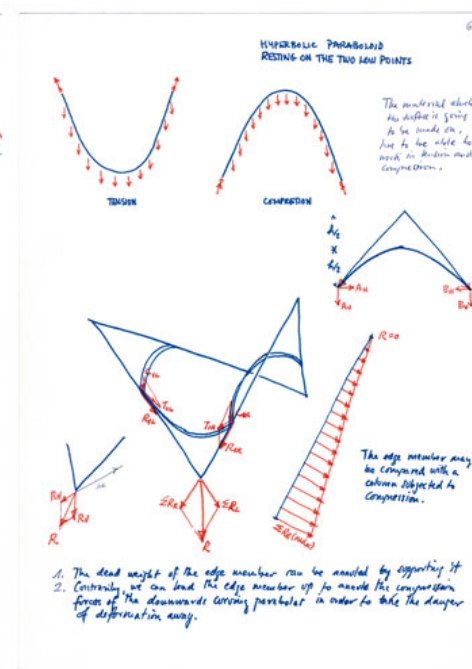 6
HYPERBOLIC PARABOLOID
RESTING ON THE TWO LOW POINTS
The material which
the surface is going
to be made on,
has to be able to
work in tension and
compression.
TENSION
COMPRETION
h/2
h/2
AH
AV
BH
BV
R=0
The edge member may
be compared with a
column subjected to
compression.
ΣRR
ΣRL
R
R
1. The dead weight of the edge member can be annuled by supporting it
2. Contrarily, we can load the edge member up to annule the compression
forces of the downwards curving parabolas in order to take the danger
of deformation away.